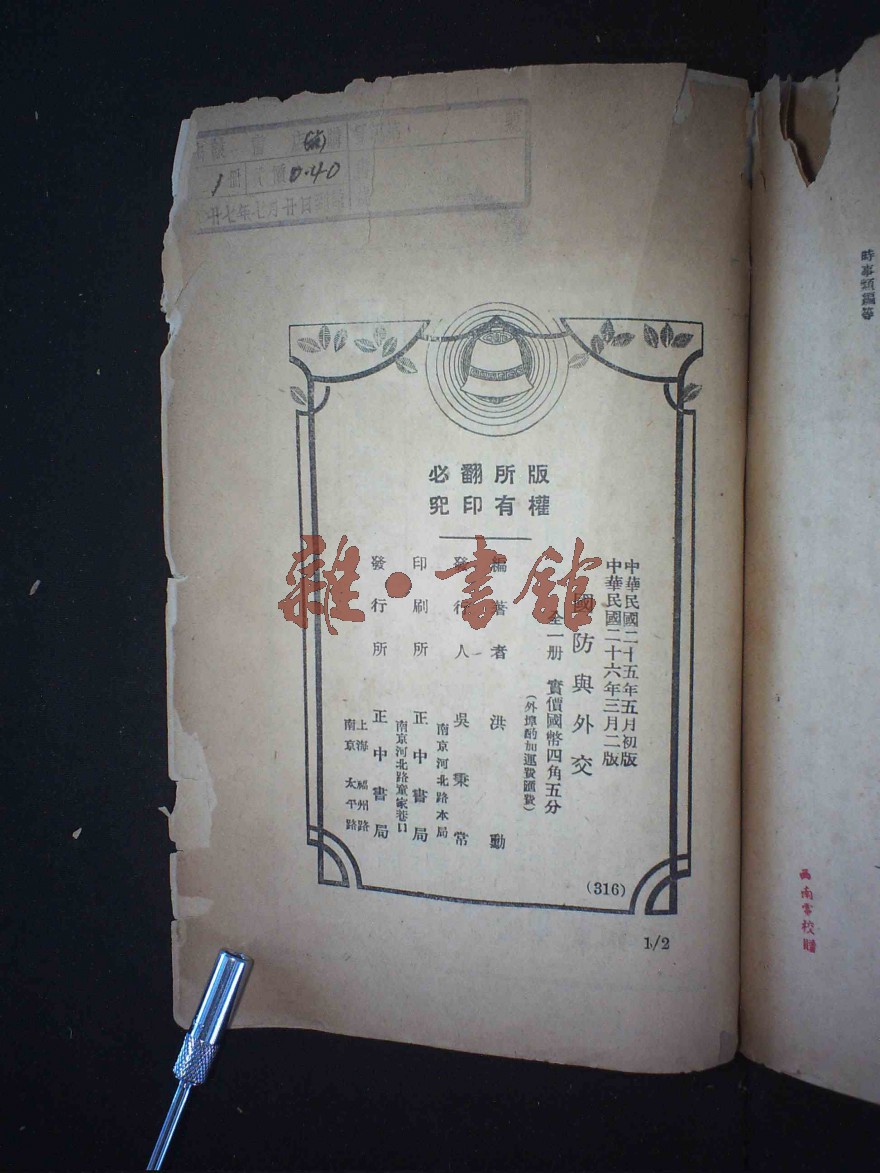 版權
所有
翻印
必究
中華民國二十五年五月初版
中華民國二十六年三月二版
國防與外交
全一册 實價國幣四角五分
(外埠酌加運費匯費)
編著者 洪勳
發行人 吳秉常
南京河北路本局
印刷所 正中書局
南京河北路童家巷口
發行所 正中書局
上海 福州路
南京 太平路
(316)
1/2
1册
0.40
廿七年七月廿日
時事類編等
雜·書館